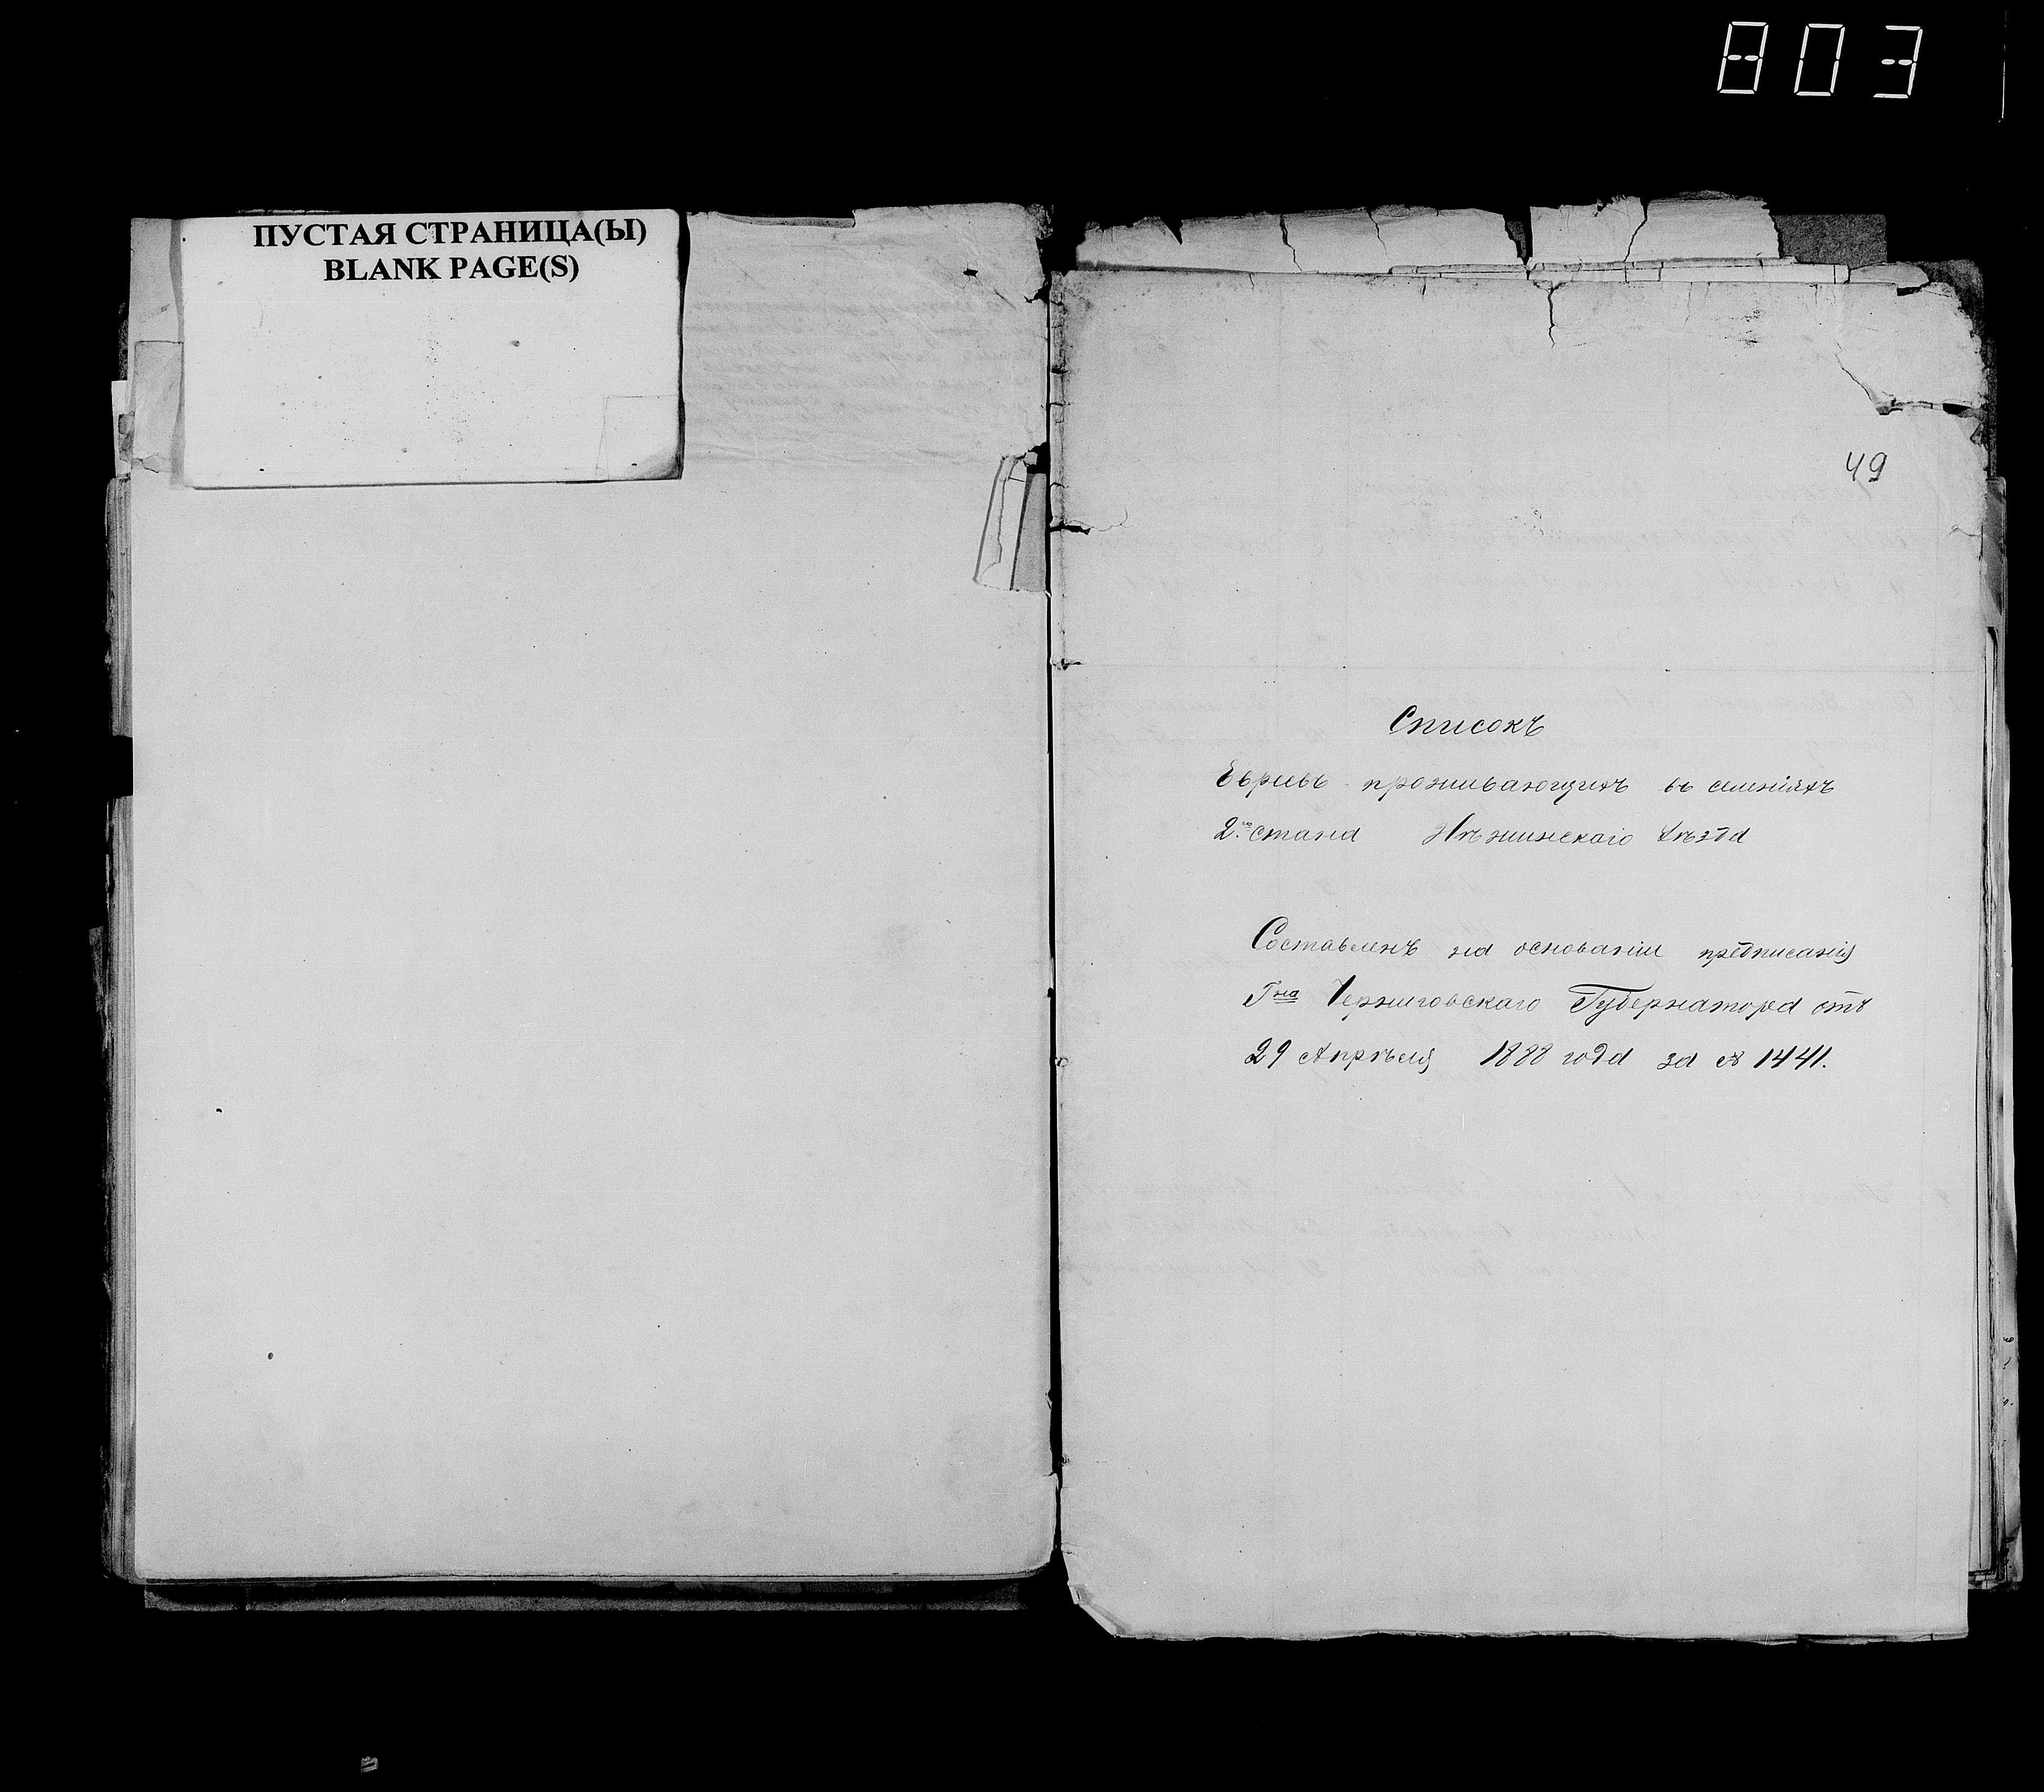 803
ПУСТАЯ СТРАНИЦА(Ы)
BLANK PAGE(S)
49
Списокъ
Евреевъ проживающихъ въ селенiяхъ
2го стана Нѣжинскаго уѣзда
Составленъ на основанiи предписанiя
Гна Черниговскаго Губернатора отъ
29 Апрѣля 1888 года за № 1441.